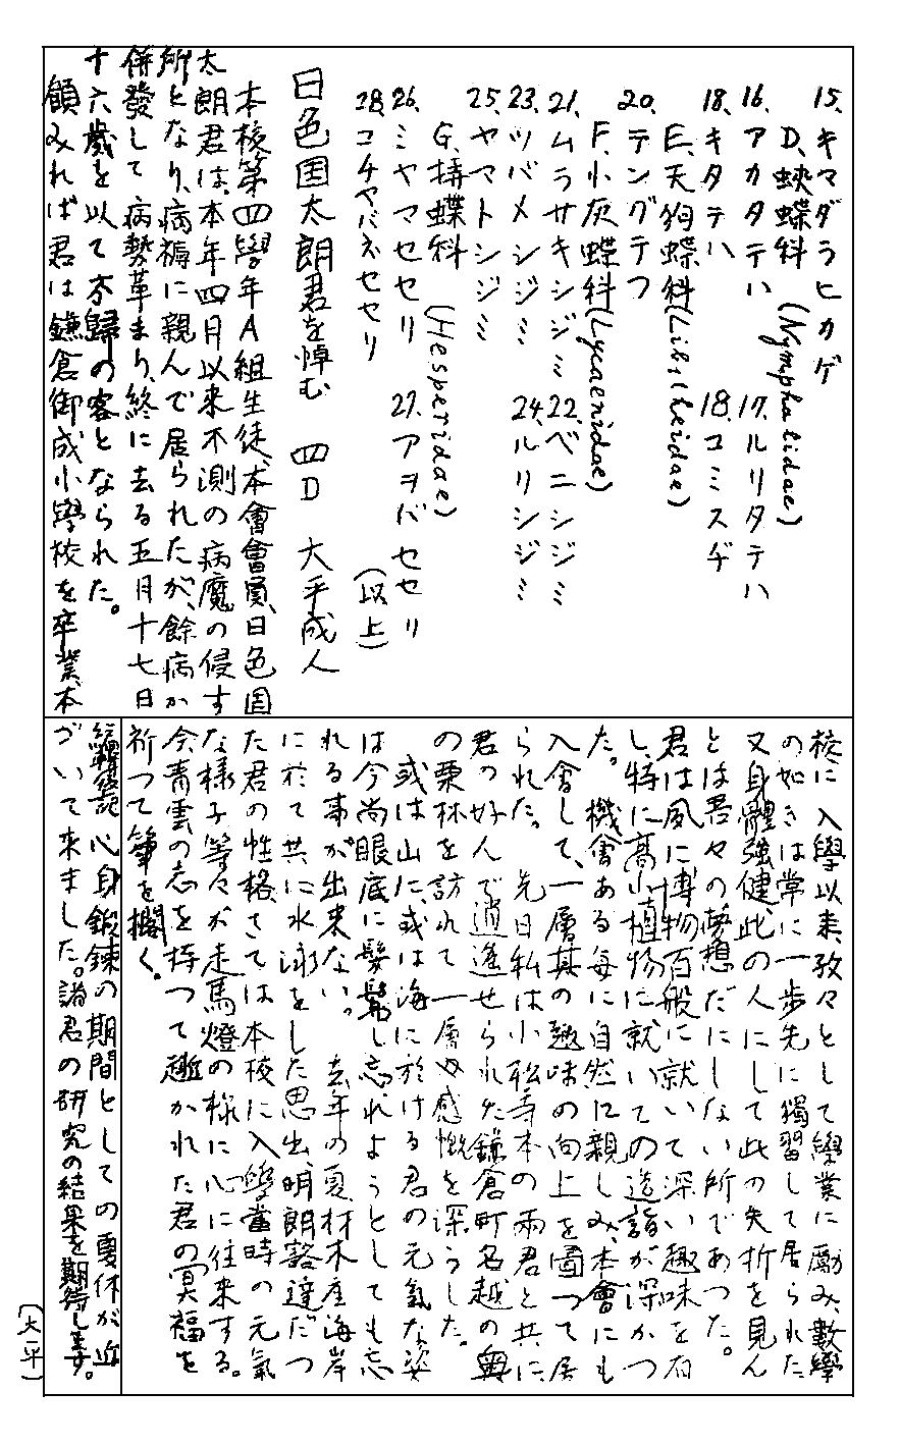 15. キマダラヒカゲ
D、蛺蝶科 (Nymphalidae)
16. アカタテハ 17. ルリタテハ
18. キタテハ 18. コミスヂ
E、天狗蝶科 (Libitheidae)
20. テングテフ
F、小灰蝶科 (Lycaenidae)
21. ムラサキシジミ 22. ベニシジミ
23. ツバメシジミ 24. ルリシジミ
25. ヤマトシジミ
G、挵蝶科 (Hesperidae)
26. ミヤマセセリ 27. アヲバセセリ
28. コチヤバネセセリ (以上)
日色国太朗君を悼む 四D 大平成人
本校第四學年A組生徒、本會會員、日色国
太朗君は、本年四月以来不測の病魔の侵す
所となり、病褥に親んで居られたが、餘病か
併發して病勢革まり、終に去る五月十七日
十六歳を以て不歸の客となられた。
顧みれば君は鎌倉御成小學校を卒業、本
校に入學以来、孜々として學業に勵み、數學
の如きは常に一歩先に獨習して居られた
又身體強健、此の人にして此の失折を見ん
とは吾々の夢想だにしない所であつた。
君は風に博物百般に就いて深い趣味を有
し、特に高山植物に就いての造詣が深かつ
た。 機會ある毎に自然に親しみ、本會にも
入會して、一層其の趣味の向上を圖つて居
られた。 先日私は小松寺本の兩君と共に、
君の好んで逍遙せられた鎌倉町名越の奥
の栗林を訪れて一層感慨を深うした。
或は山に、或は海に於ける君の元氣な姿
は今尚眼底に髣髴し忘れようとしても忘
れる事が出来ない。 去年の夏、材木座海岸
に於て共に水泳をした思出、明朗豁達だつ
た君の性格、さては本校に入學當時の元氣
な様子等々が走馬燈の様に心に往来する。
今、青雲の志を持つて逝かれた君の冥福を
祈つて筆を擱く。
編輯後記 心身鍛錬の期間としての夏休が近
づいて来ました。諸君の研究の結果を期待します。
(大平)